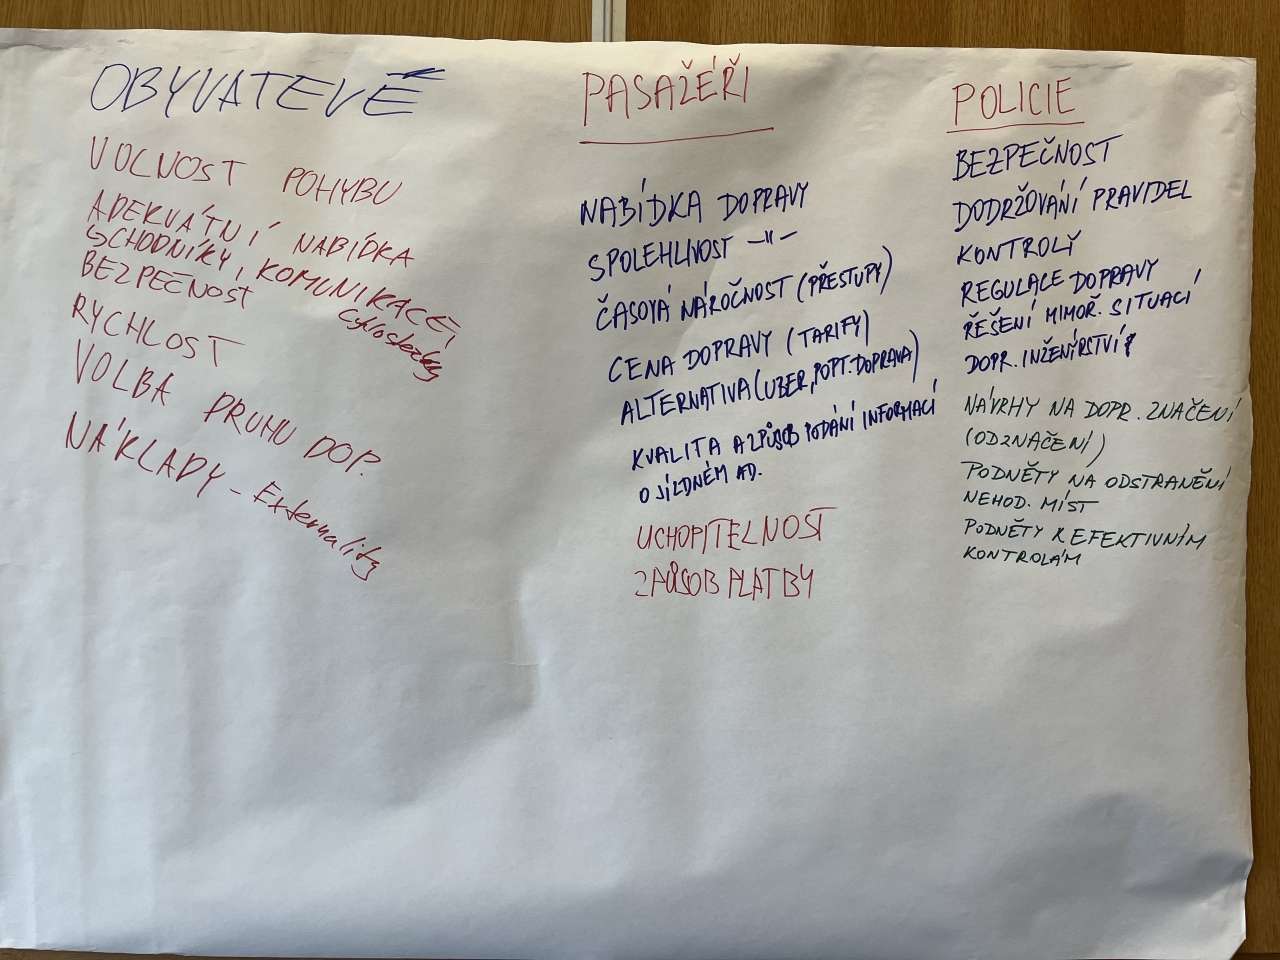 OBYVATELÉ
VOLNOST POHYBU
ADEKVÁTNÍ NABÍDKA
SCHODNÍKY, KOMUNIKACE,
cyklostezky
BEZPEČNOST
RYCHLOST
VOLBA DRUHU DOP.
NÁKLADY - Externality
PASAŽÉŘI
NABÍDKA DOPRAVY
SPOLEHLIVOST -"-
ČASOVÁ NÁROČNOST (PŘESTUPY)
CENA DOPRAVY (TARIFY)
ALTERNATIVA (UBER, POPT. DOPRAVA)
KVALITA A ZPŮSOB PODÁNÍ INFORMACÍ
O JÍZDNÉM ŘÁD.
UCHOPITELNOST
ZPŮSOB PLATBY
POLICIE
BEZPEČNOST
DODRŽOVÁNÍ PRAVIDEL
KONTROLY
REGULACE DOPRAVY
ŘEŠENÍ MIMOŘ. SITUACÍ
DOPR. INŽENÍRSTVÍ
NÁVRHY NA DOPR. ZNAČENÍ
(ODZNAČENÍ)
PODNĚTY NA ODSTRANĚNÍ
NEHOD. MÍST
PODNĚTY K EFEKTIVNÍM
KONTROLÁM